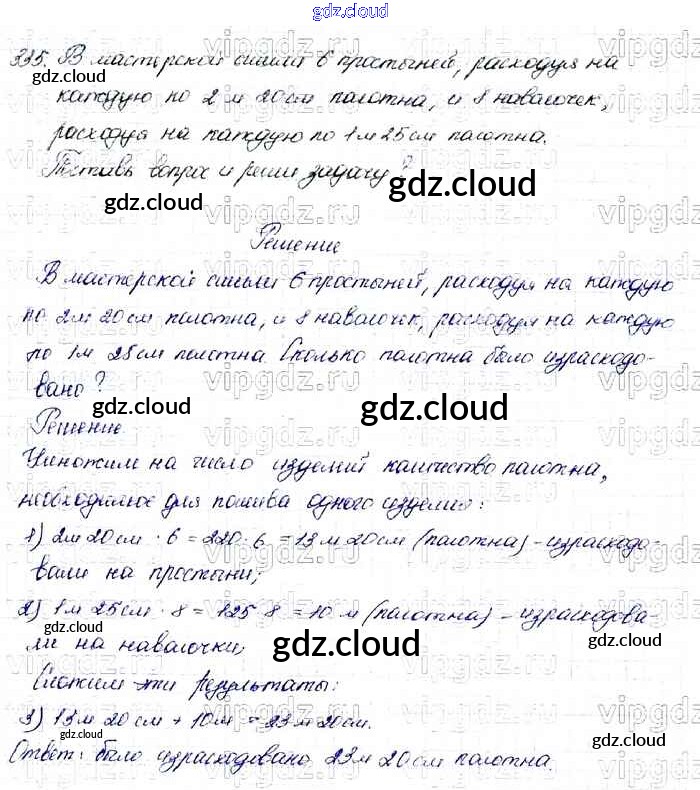 gdz.cloud
335. В мастерской сшили 6 простыней, расходуя на
каждую по 2 м 20 см полотна, и 8 наволочек,
расходуя на каждую по 1 м 25 см полотна.
Поставь вопрос и реши задачу?
Решение
В мастерской сшили 6 простыней, расходуя на каждую
по 2м 20 см полотна, и 8 наволочек, расходуя на каждую
по 1м 25см полотна. Сколько полотна было израсходо-
вано?
Решение
Умножим на число изделий количество полотна,
необходимое для пошива одного изделия:
1) 2м 20 см · 6 = 220 · 6 = 13 м 20 см (полотна) - израсходо-
вали на простыни;
2) 1 м 25 см · 8 = 125 · 8 = 10 м (полотна) - израсходова-
ли на наволочки;
Сложим эти результаты:
3) 13 м 20 см + 10 м = 23 м 20 см.
Ответ: было израсходовано 23 м 20 см полотна.